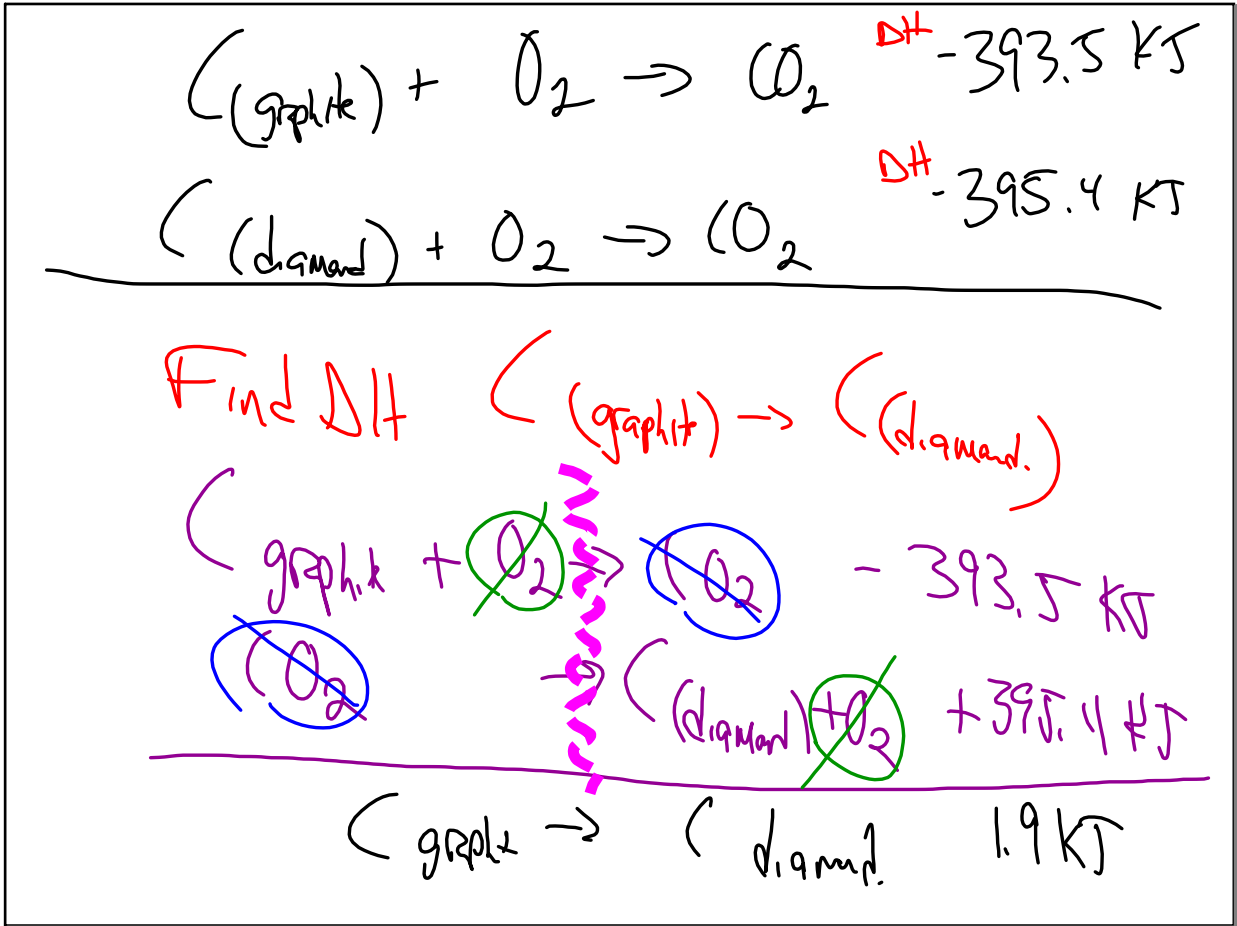 C(graphite) + O₂ → CO₂ ΔH -393.5 KJ
C(diamond) + O₂ → CO₂ ΔH -395.4 KJ
Find ΔH C(graphite) → C(diamond.)
C graphite + O₂ → CO₂ - 393.5 KJ
CO₂ → C(diamond) + O₂ +395.4 KJ
C graphite → C diamond. 1.9 KJ